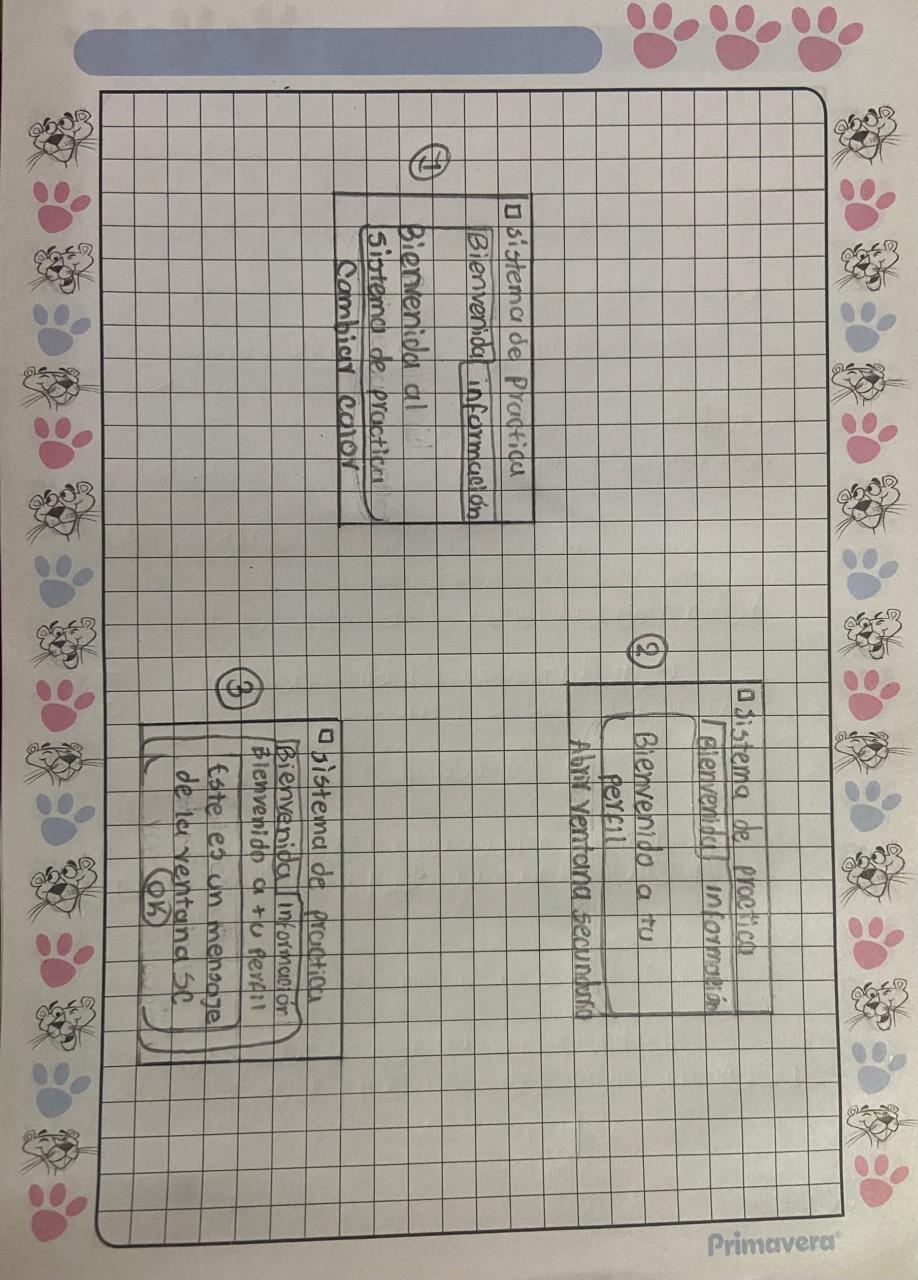 1
sistema de Practica
Bienvenida información
Bienvenida al
sistema de practica
Cambiar color
2
sistema de practica
Bienvenida información
Bienvenido a tu
perfil
Abrir ventana secundaria
3
sistema de practica
Bienvenida Información
Bienvenido a tu Perfil
Este es un mensaje
de la ventana SC
OK
Primavera